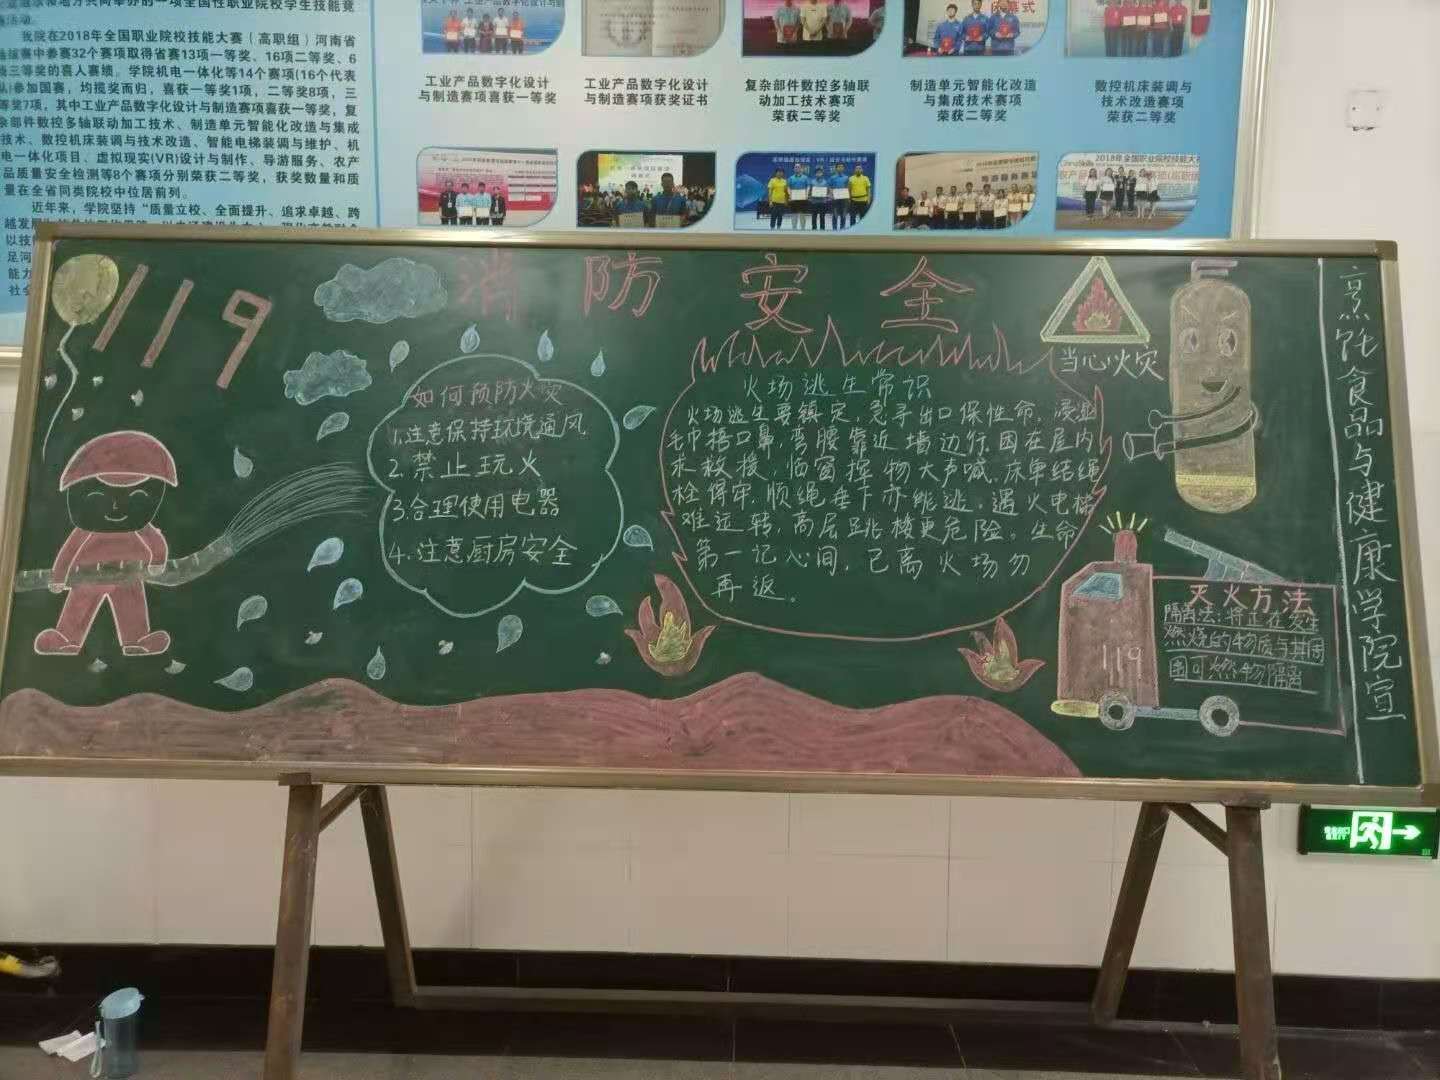 我院在2018年全国职业院校技能大赛（高职组）河南省
赛中参赛32个赛项取得省赛13项一等奖、16项二等奖、6
三等奖的喜人赛绩。学院机电一体化等14个赛项(16个代表
队)参加国赛，均揽奖而归，喜获一等奖1项，二等奖8项，三
等奖7项，其中工业产品数字化设计与制造赛项喜获一等奖，复
杂部件数控多轴联动加工技术、制造单元智能化改造与集成
技术、数控机床装调与技术改造、智能电梯装调与维护、机
电一体化项目、虚拟现实(VR)设计与制作、导游服务、农产
品质量安全检测等8个赛项分别荣获二等奖，获奖数量和质
量在全省同类院校中位居前列。
近年来，学院坚持“质量立校、全面提升、追求卓越、跨
工业产品数字化设计
与制造赛项喜获一等奖
工业产品数字化设计
与制造赛项获奖证书
复杂部件数控多轴联
动加工技术赛项
荣获二等奖
制造单元智能化改造
与集成技术赛项
荣获二等奖
数控机床装调与
技术改造赛项
荣获二等奖
119
消防安全
如何预防火灾
1.注意保持环境通风
2.禁止玩火
3.合理使用电器
4.注意厨房安全
火场逃生常识
火场逃生要镇定，急寻出口保性命，浸湿
毛巾捂口鼻，弯腰靠近墙边行.困在屋内
求救援，临窗挥物大声喊.床单结绳
栓得牢，顺绳垂下亦能逃。遇火电梯
难运转，高层跳楼更危险。生命
第一记心间，已离火场勿
再返。
当心火灾
119
灭火方法
隔离法：将正在发生
燃烧的物质与其周
围可燃物隔离
烹饪食品与健康学院宣